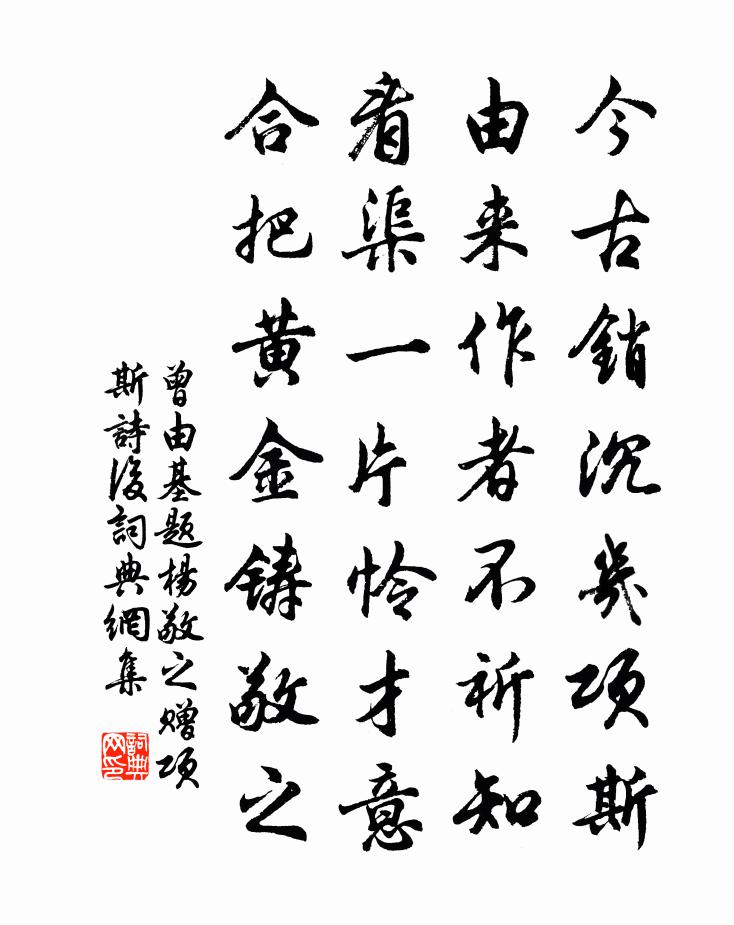 今古銷沉幾項斯
由来作者不祈知
看渠一片怜才意
合把黄金鑄敬之
曾由基题楊敬之赠项
斯詩後詞典網集
詞典网印